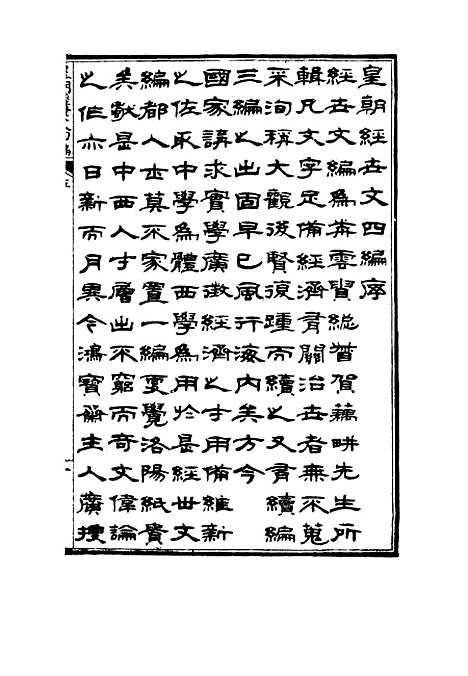 皇朝經世文四編序
經世文編爲前雲貴總督賀藕畊先生所
輯凡文字足備經濟有關治世者無不蒐
采洵稱大觀後賢復踵而續之又有續編
三編之出固早已風行海內矣方今
國家講求實學廣徵經濟之才用備維新
之佐取中學爲體西學爲用於是經世文
編都人士莫不家置一編更覺洛陽紙貴
矣猷是中西人才層出不窮而奇文偉論
之作亦日新而月異今鴻寶齋主人廣搜